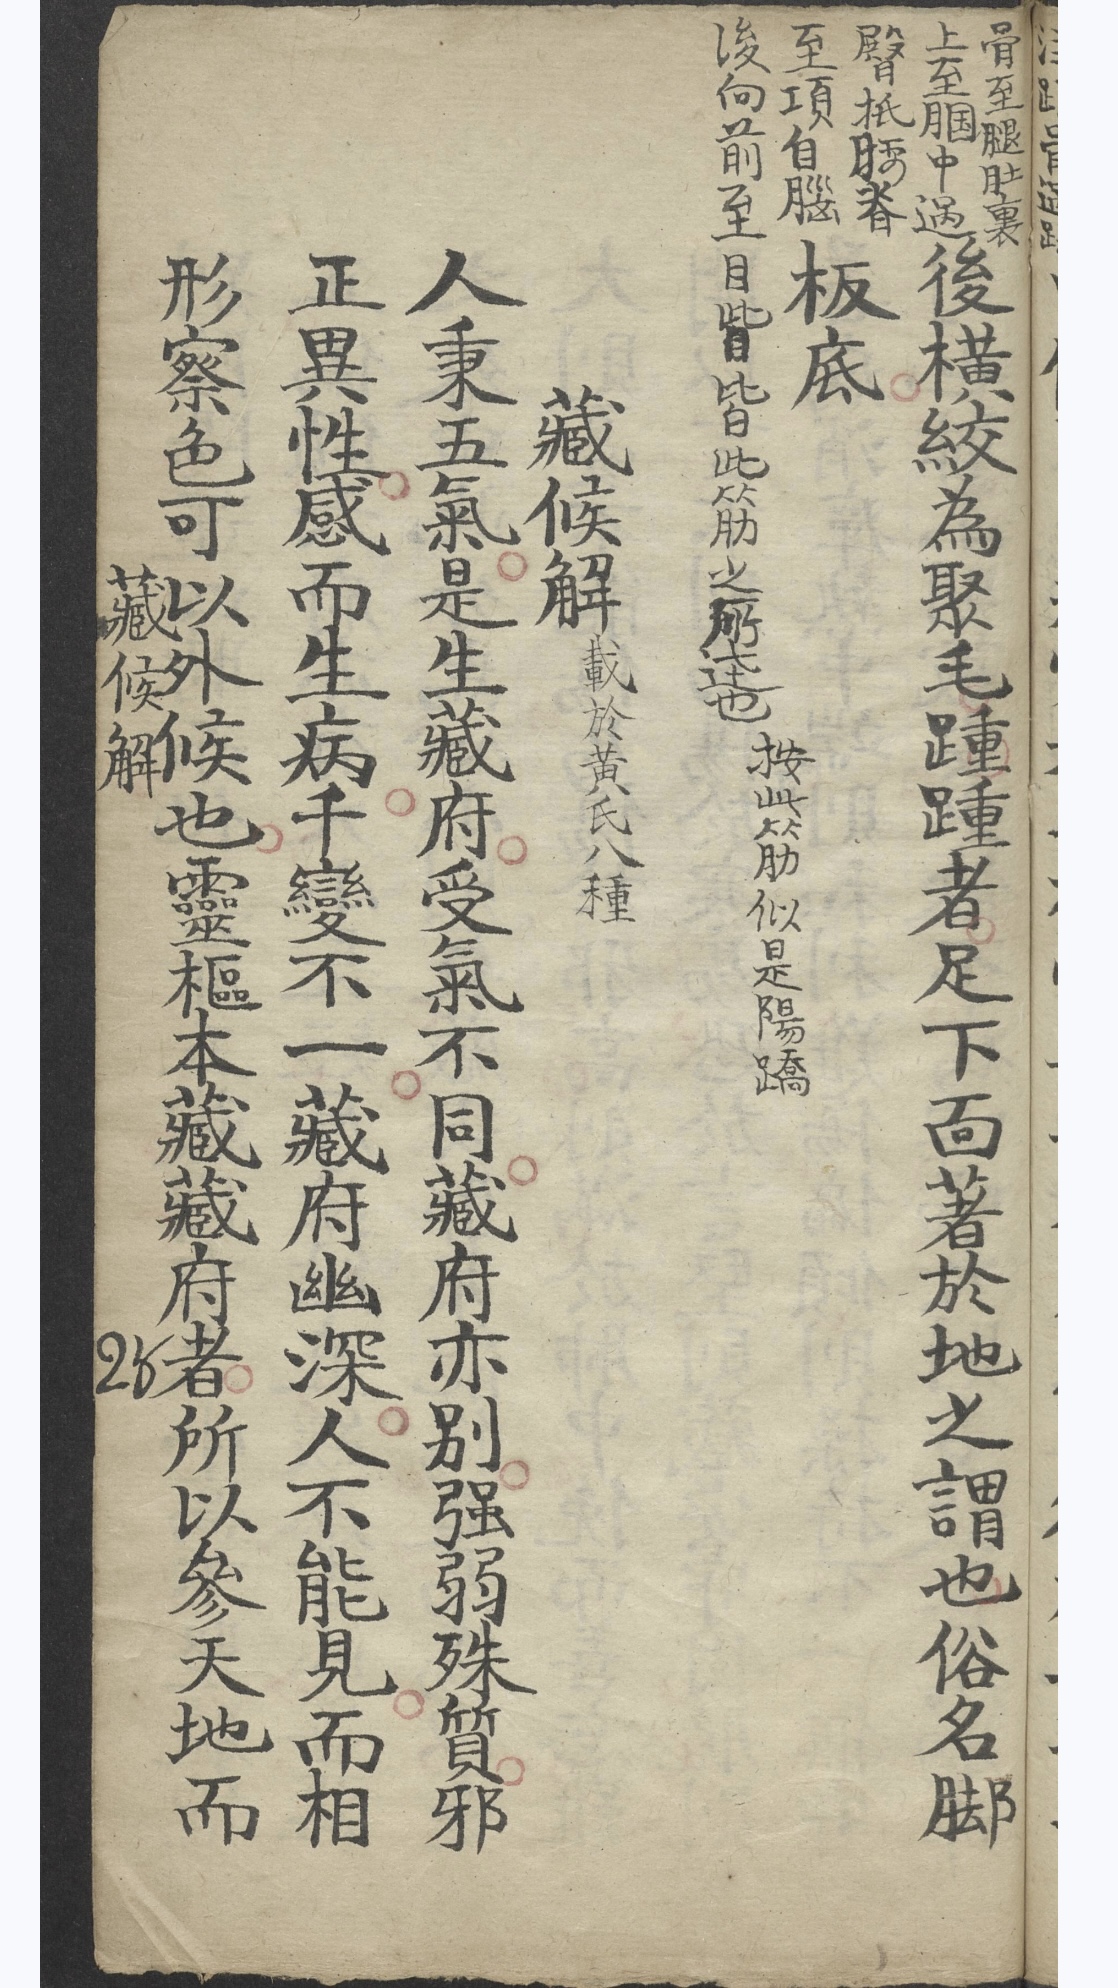 骨至腿肚裏
上至膕中過
臀抵腰脊
至項自腦
後向前至目眥皆此筋之所
後橫絞為聚毛踵踵者足下面著於地之謂也俗名脚
板底
按此筋似是陽蹻
藏候解載於黃氏八種
人秉五氣是生藏府受氣不同藏府亦別强弱殊質邪
正異性感而生病千變不一藏府幽深人不能見而相
形察色可以外候也靈樞本藏藏府者所以參天地而
藏候解